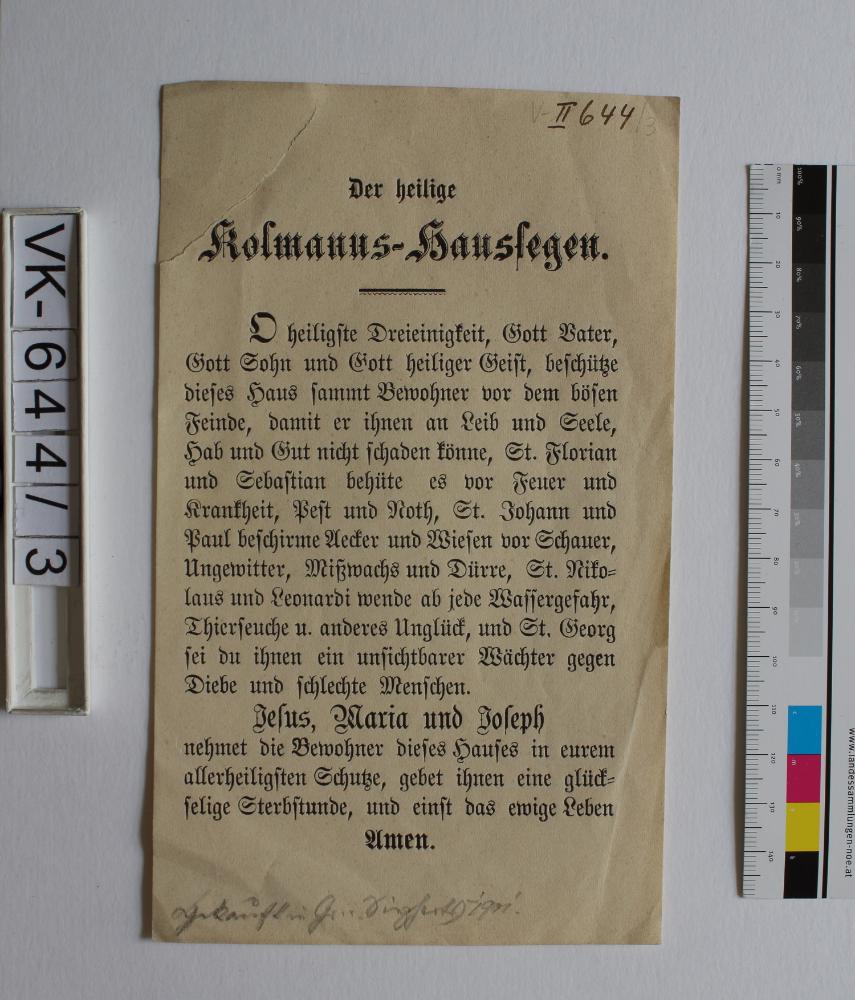 V-II 644/3
Der heilige
Kolmanus-Haussegen.
O heiligste Dreieinigkeit, Gott Vater,
Gott Sohn und Gott heiliger Geist, beschütze
dieses Haus sammt Bewohner vor dem bösen
Feinde, damit er ihnen an Leib und Seele,
Hab und Gut nicht schaden könne, St. Florian
und Sebastian behüte es vor Feuer und
Krankheit, Pest und Noth, St. Johann und
Paul beschirme Aecker und Wiesen vor Schauer,
Ungewitter, Mißwachs und Dürre, St. Niko-
laus und Leonardi wende ab jede Wassergefahr,
Thierseuche u. anderes Unglück, und St. Georg
sei du ihnen ein unsichtbarer Wächter gegen
Diebe und schlechte Menschen.
Jesus, Maria und Joseph
nehmet die Bewohner dieses Hauses in eurem
allerheiligsten Schutze, gebet ihnen eine glück-
selige Sterbstunde, und einst das ewige Leben
Amen.
Gekauft in
VK-644/3
0 mm
10
20
30
40
50
60
70
80
90
100
110
120
130
140
100%
90%
80%
70%
60%
50%
40%
30%
20%
c
m
y
k
www.landessammlungen-noe.at